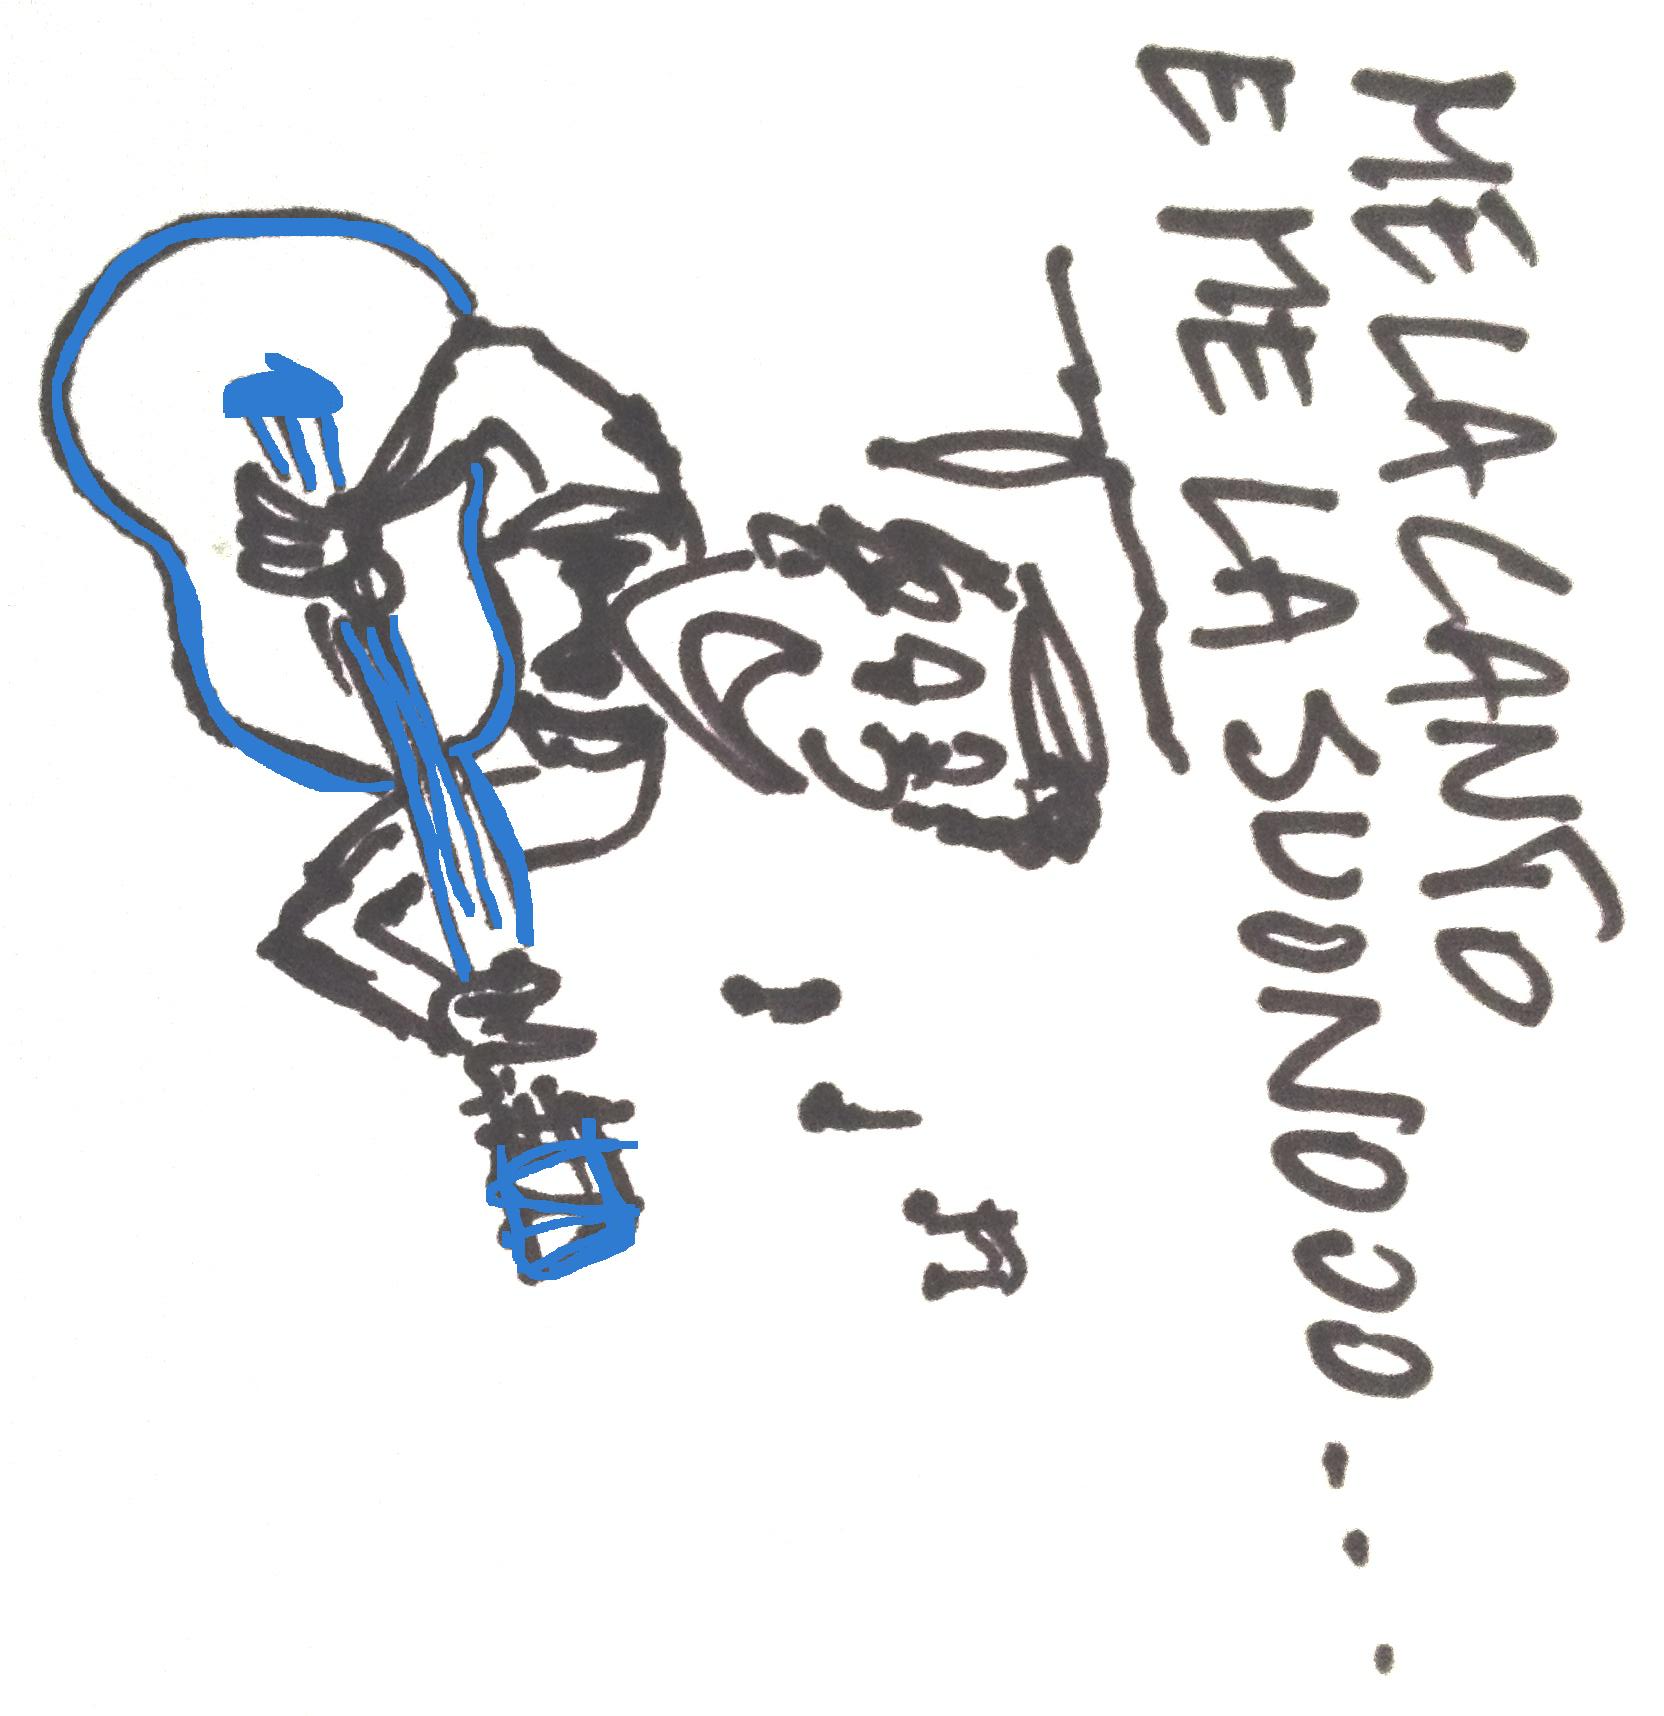 ME LA CANTO
E ME LA SUONO CO...